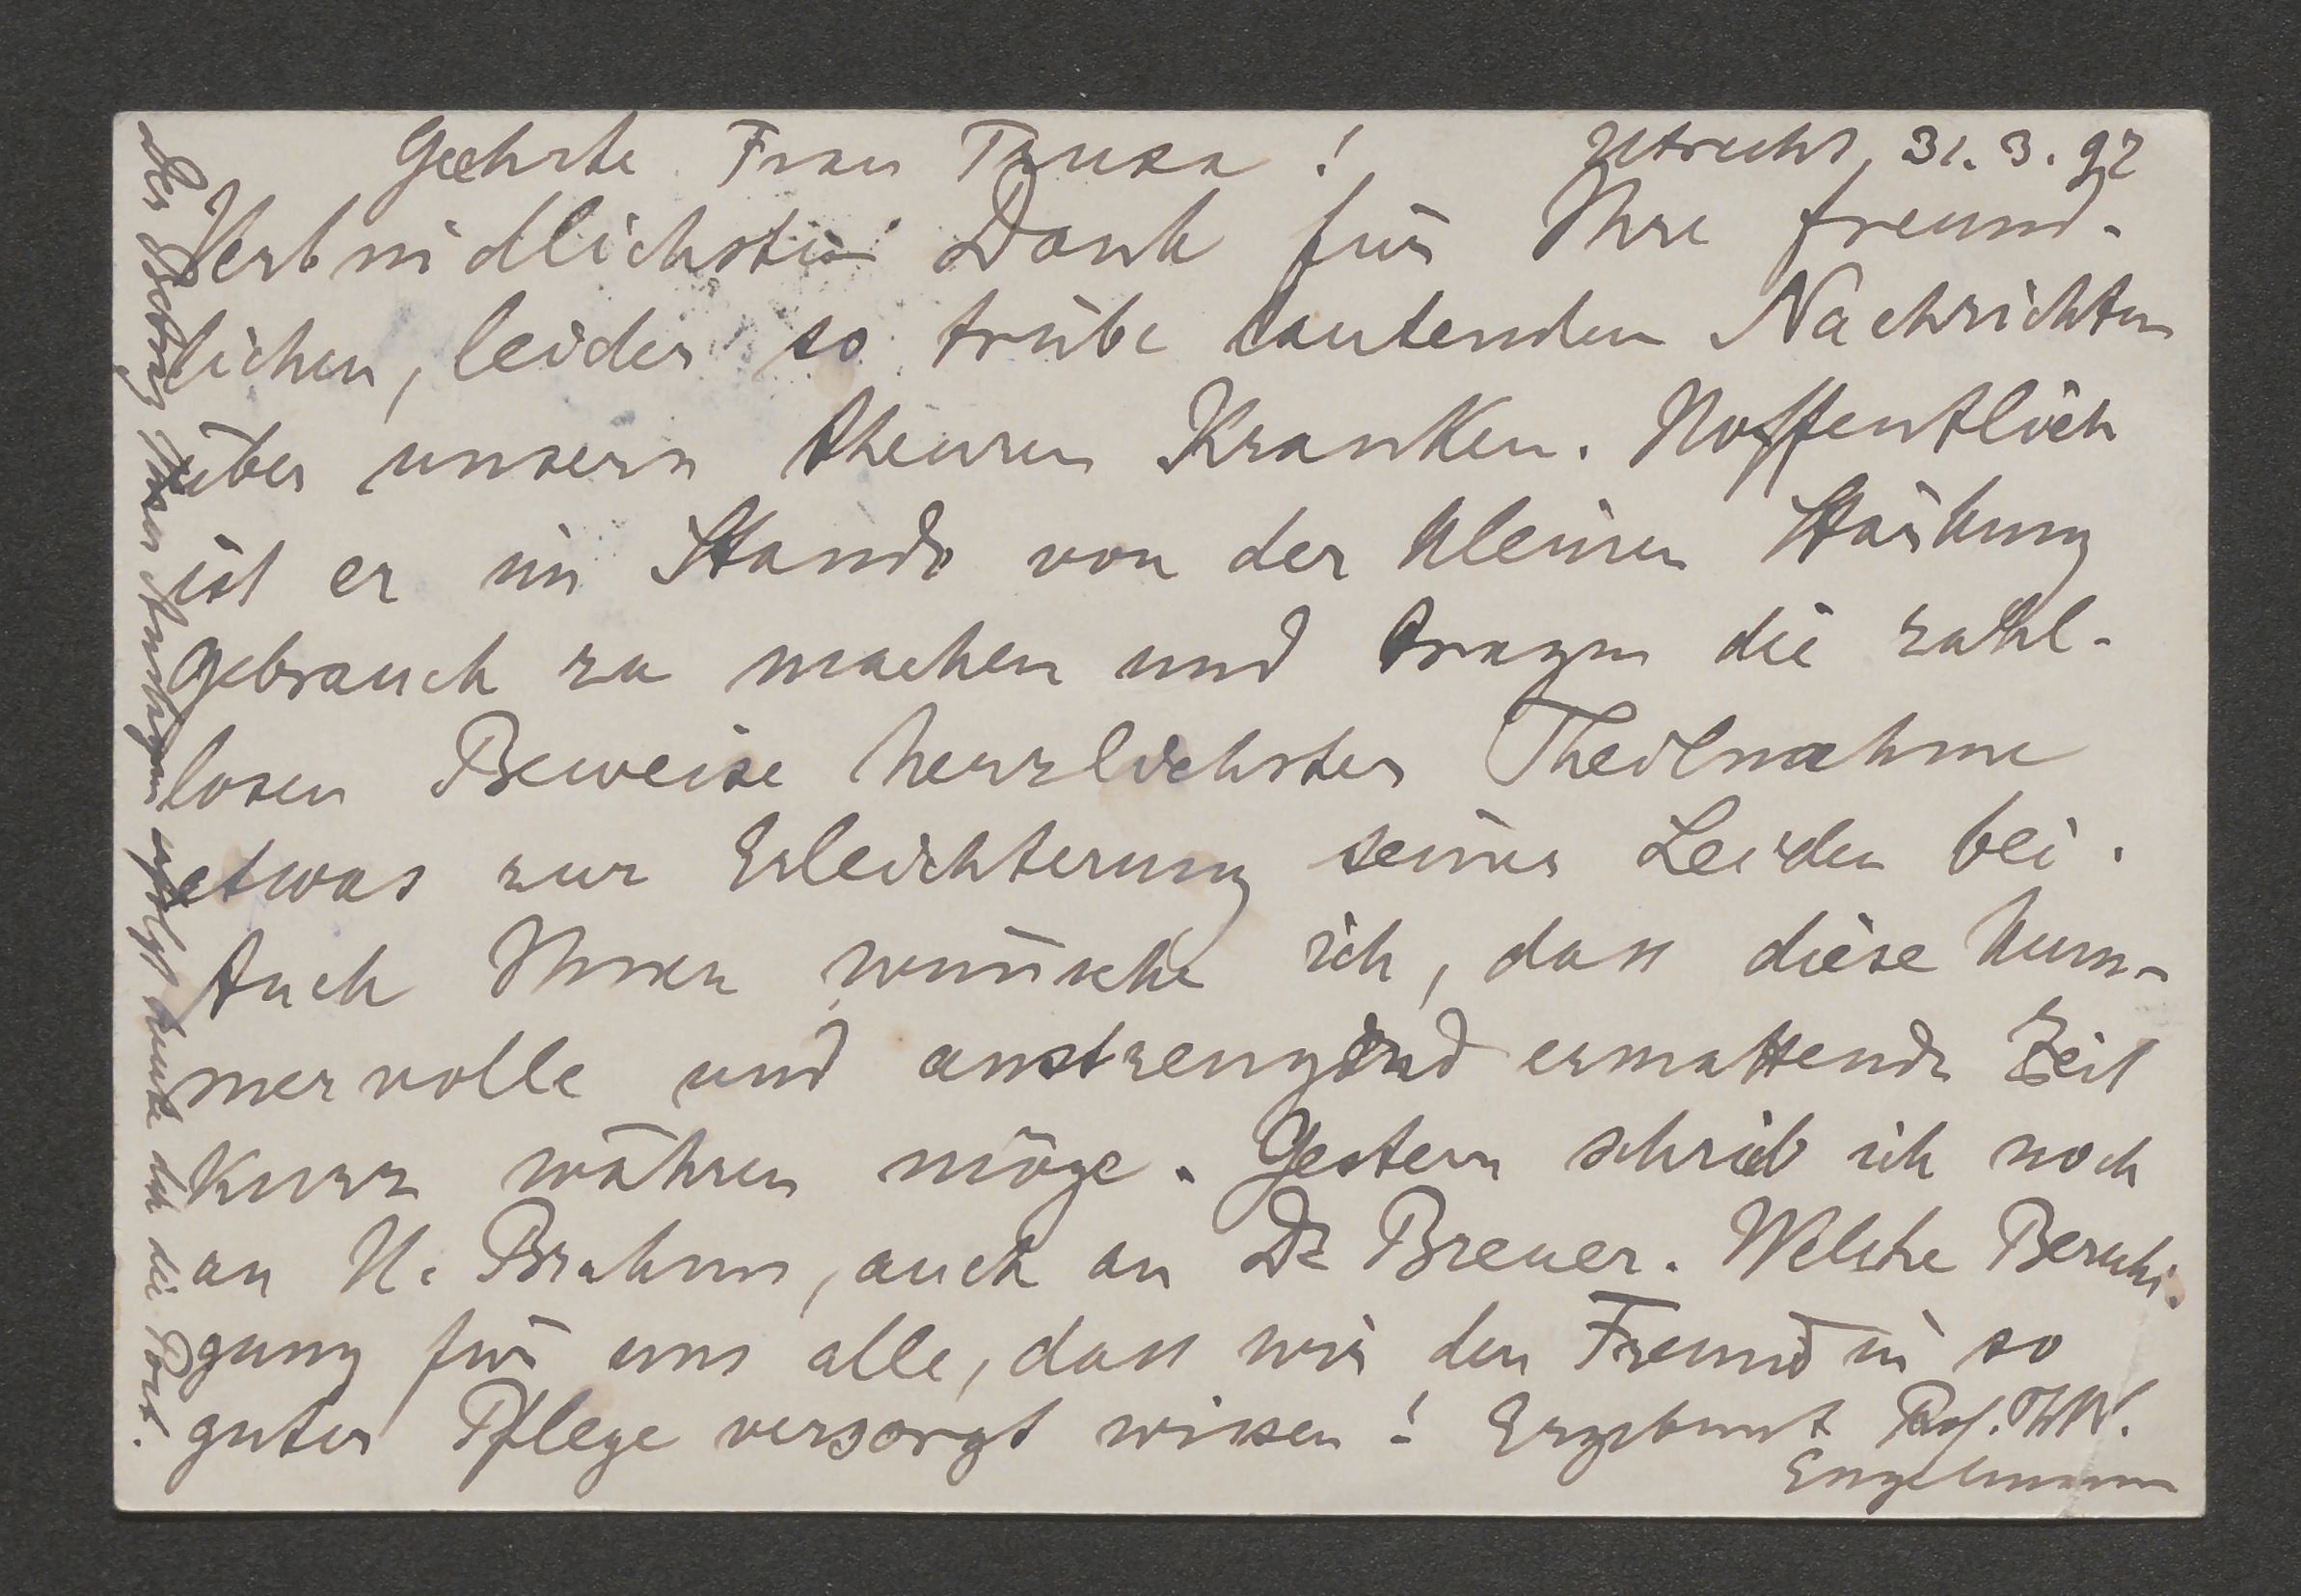 Geehrte Frau Truxa! Utrecht, 31. 3. 97
Verbindlichsten Dank für Ihre freund-
lichen, leider so trübe lautenden Nachrichten
über unsern theuren Kranken. Hoffentlich
ist er im Stande von der kleinen Stärkung
Gebrauch zu machen und tragen die zahl-
losen Beweise herzlichster Theilnahme
etwas zur Erleichterung seiner Leiden bei.
Auch Ihnen wünsche ich, dass diese kum-
mervolle und anstrengend ermattende Zeit
kurz währen möge. Gestern schrieb ich noch
an H. Brahms, auch an Dr Breuer. Welche Beruhi-
gung für uns alle, dass wir den Freund in so
guter Pflege versorgt wissen! Ergebenst Prof. ThW.
Engelmann
Der Betrag Ihrer Auslagen erfolgt heute durch die Post.